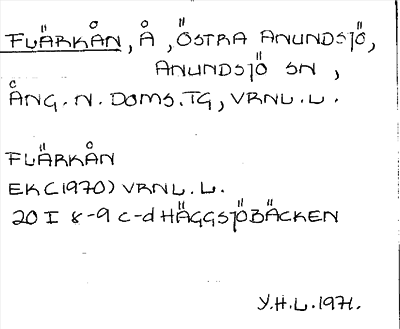 FLÄRKÅN, Å, ÖSTRA ANUNDSJÖ,
ANUNDSJÖ SN,
ÅNG. N. DOMS. TG, VRNL. L.
FLÄRKÅN
EK (1970) VRNL. L.
20 I 8-9 c-d HÄGGSJÖBÄCKEN
Y.H.L. 1971.